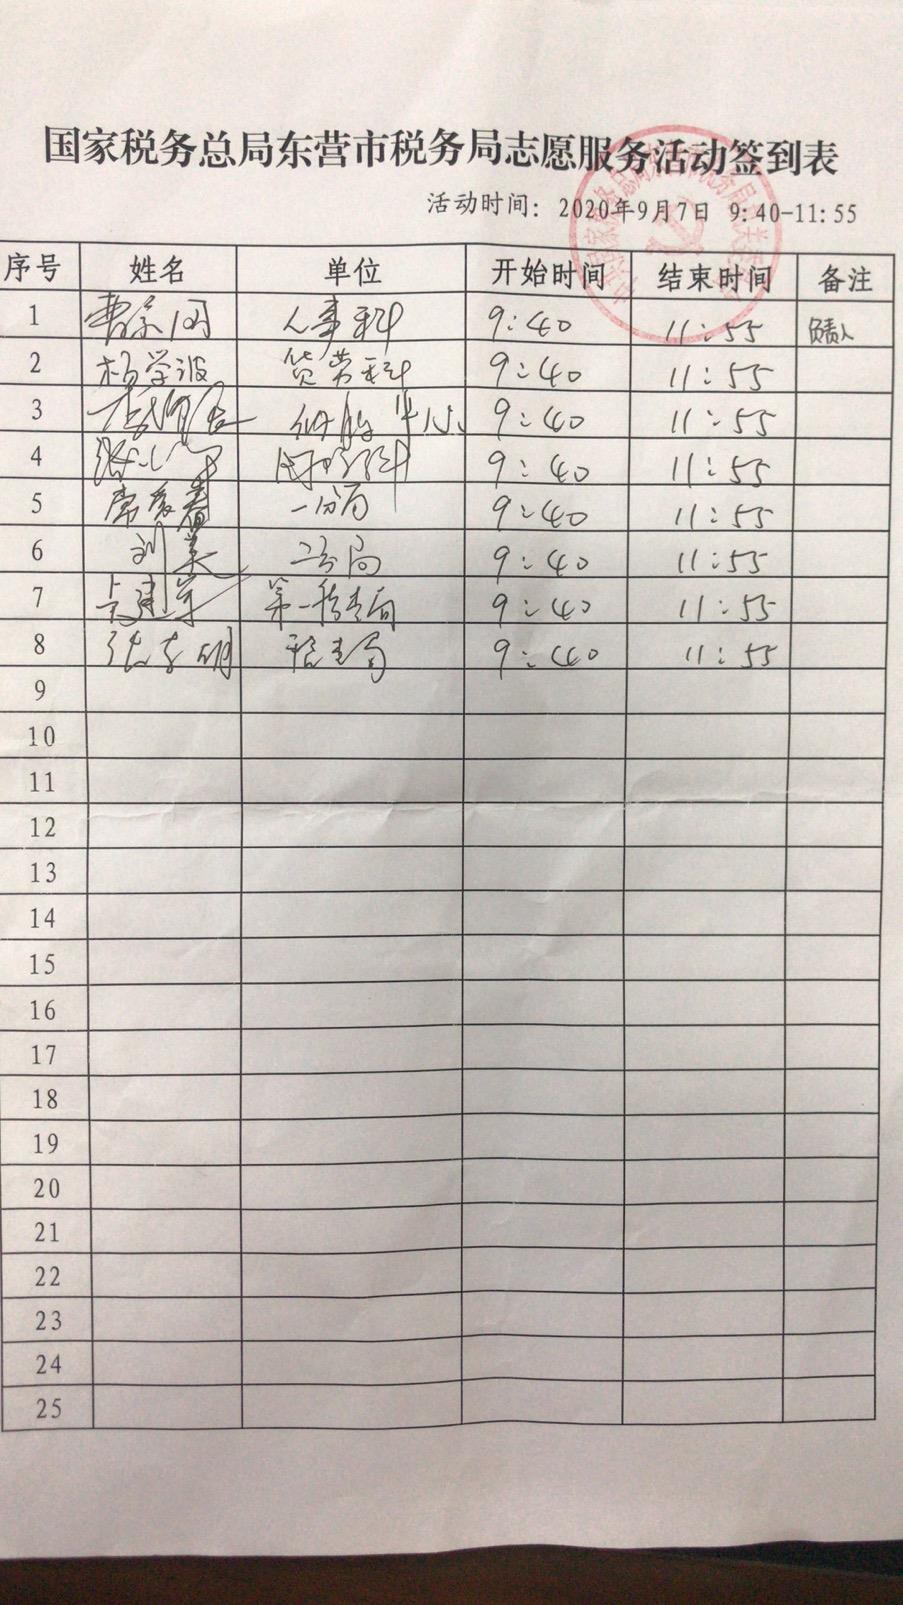 国家税务总局东营市税务局志愿服务活动签到表
活动时间：2020年9月7日 9:40-11:55
序号 姓名 单位 开始时间 结束时间 备注
1 人事科 9:40 11:55 负责人
2 杨学波 货劳科 9:40 11:55
3 9:40 11:55
4 9:40 11:55
5 一分局 9:40 11:55
6 刘英 二分局 9:40 11:55
7 第一稽查局 9:40 11:55
8 张志明 稽查局 9:40 11:55
9
10
11
12
13
14
15
16
17
18
19
20
21
22
23
24
25